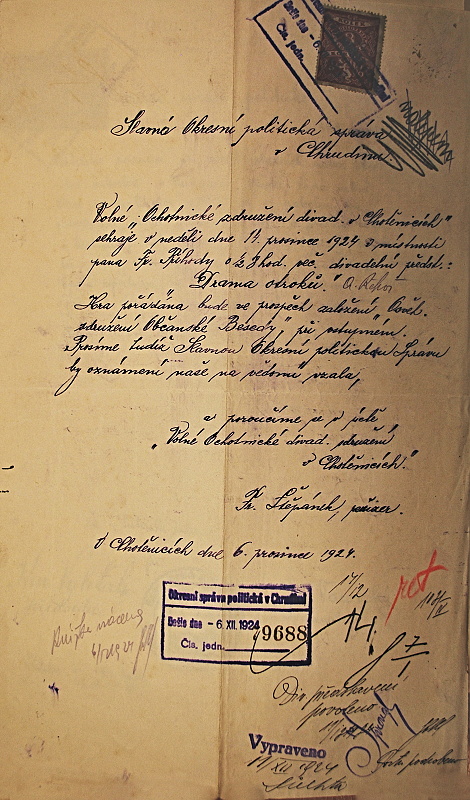 Došlo dne - 6.
Čís. jedn.
KOLEK
Slavná Okresní politická správa
v Chrudimi.
Volné „Ochotnické združení divad. v Chotěnicích"
sehraje v neděli dne 14. prosince 1924 v místnosti
pana Fr. Příhody o ½ 8 hod. več. divadelní předst.:
Drama otroků."
Hra pořádána bude ve prospěch založení „Osvět.
združení Občanské Besedy", při vstupném.
Prosíme tudíž, Slavnou Okresní politickou Správu
by oznámení naše na vědomí vzala,
a poroučíme se v úctě
„Volné Ochotnické divad. združení
v Chotěnicích."
Fr. Štěpánek, režizer.
V Chotěnicích dne 6. prosince 1924.
17/2
14.
Okresní správa politická v Chrudimi
Došlo dne - 6. XII. 1924
Čís. jedn. 9688
7
Div. představení
povoleno
Vypraveno
11/XII 1924